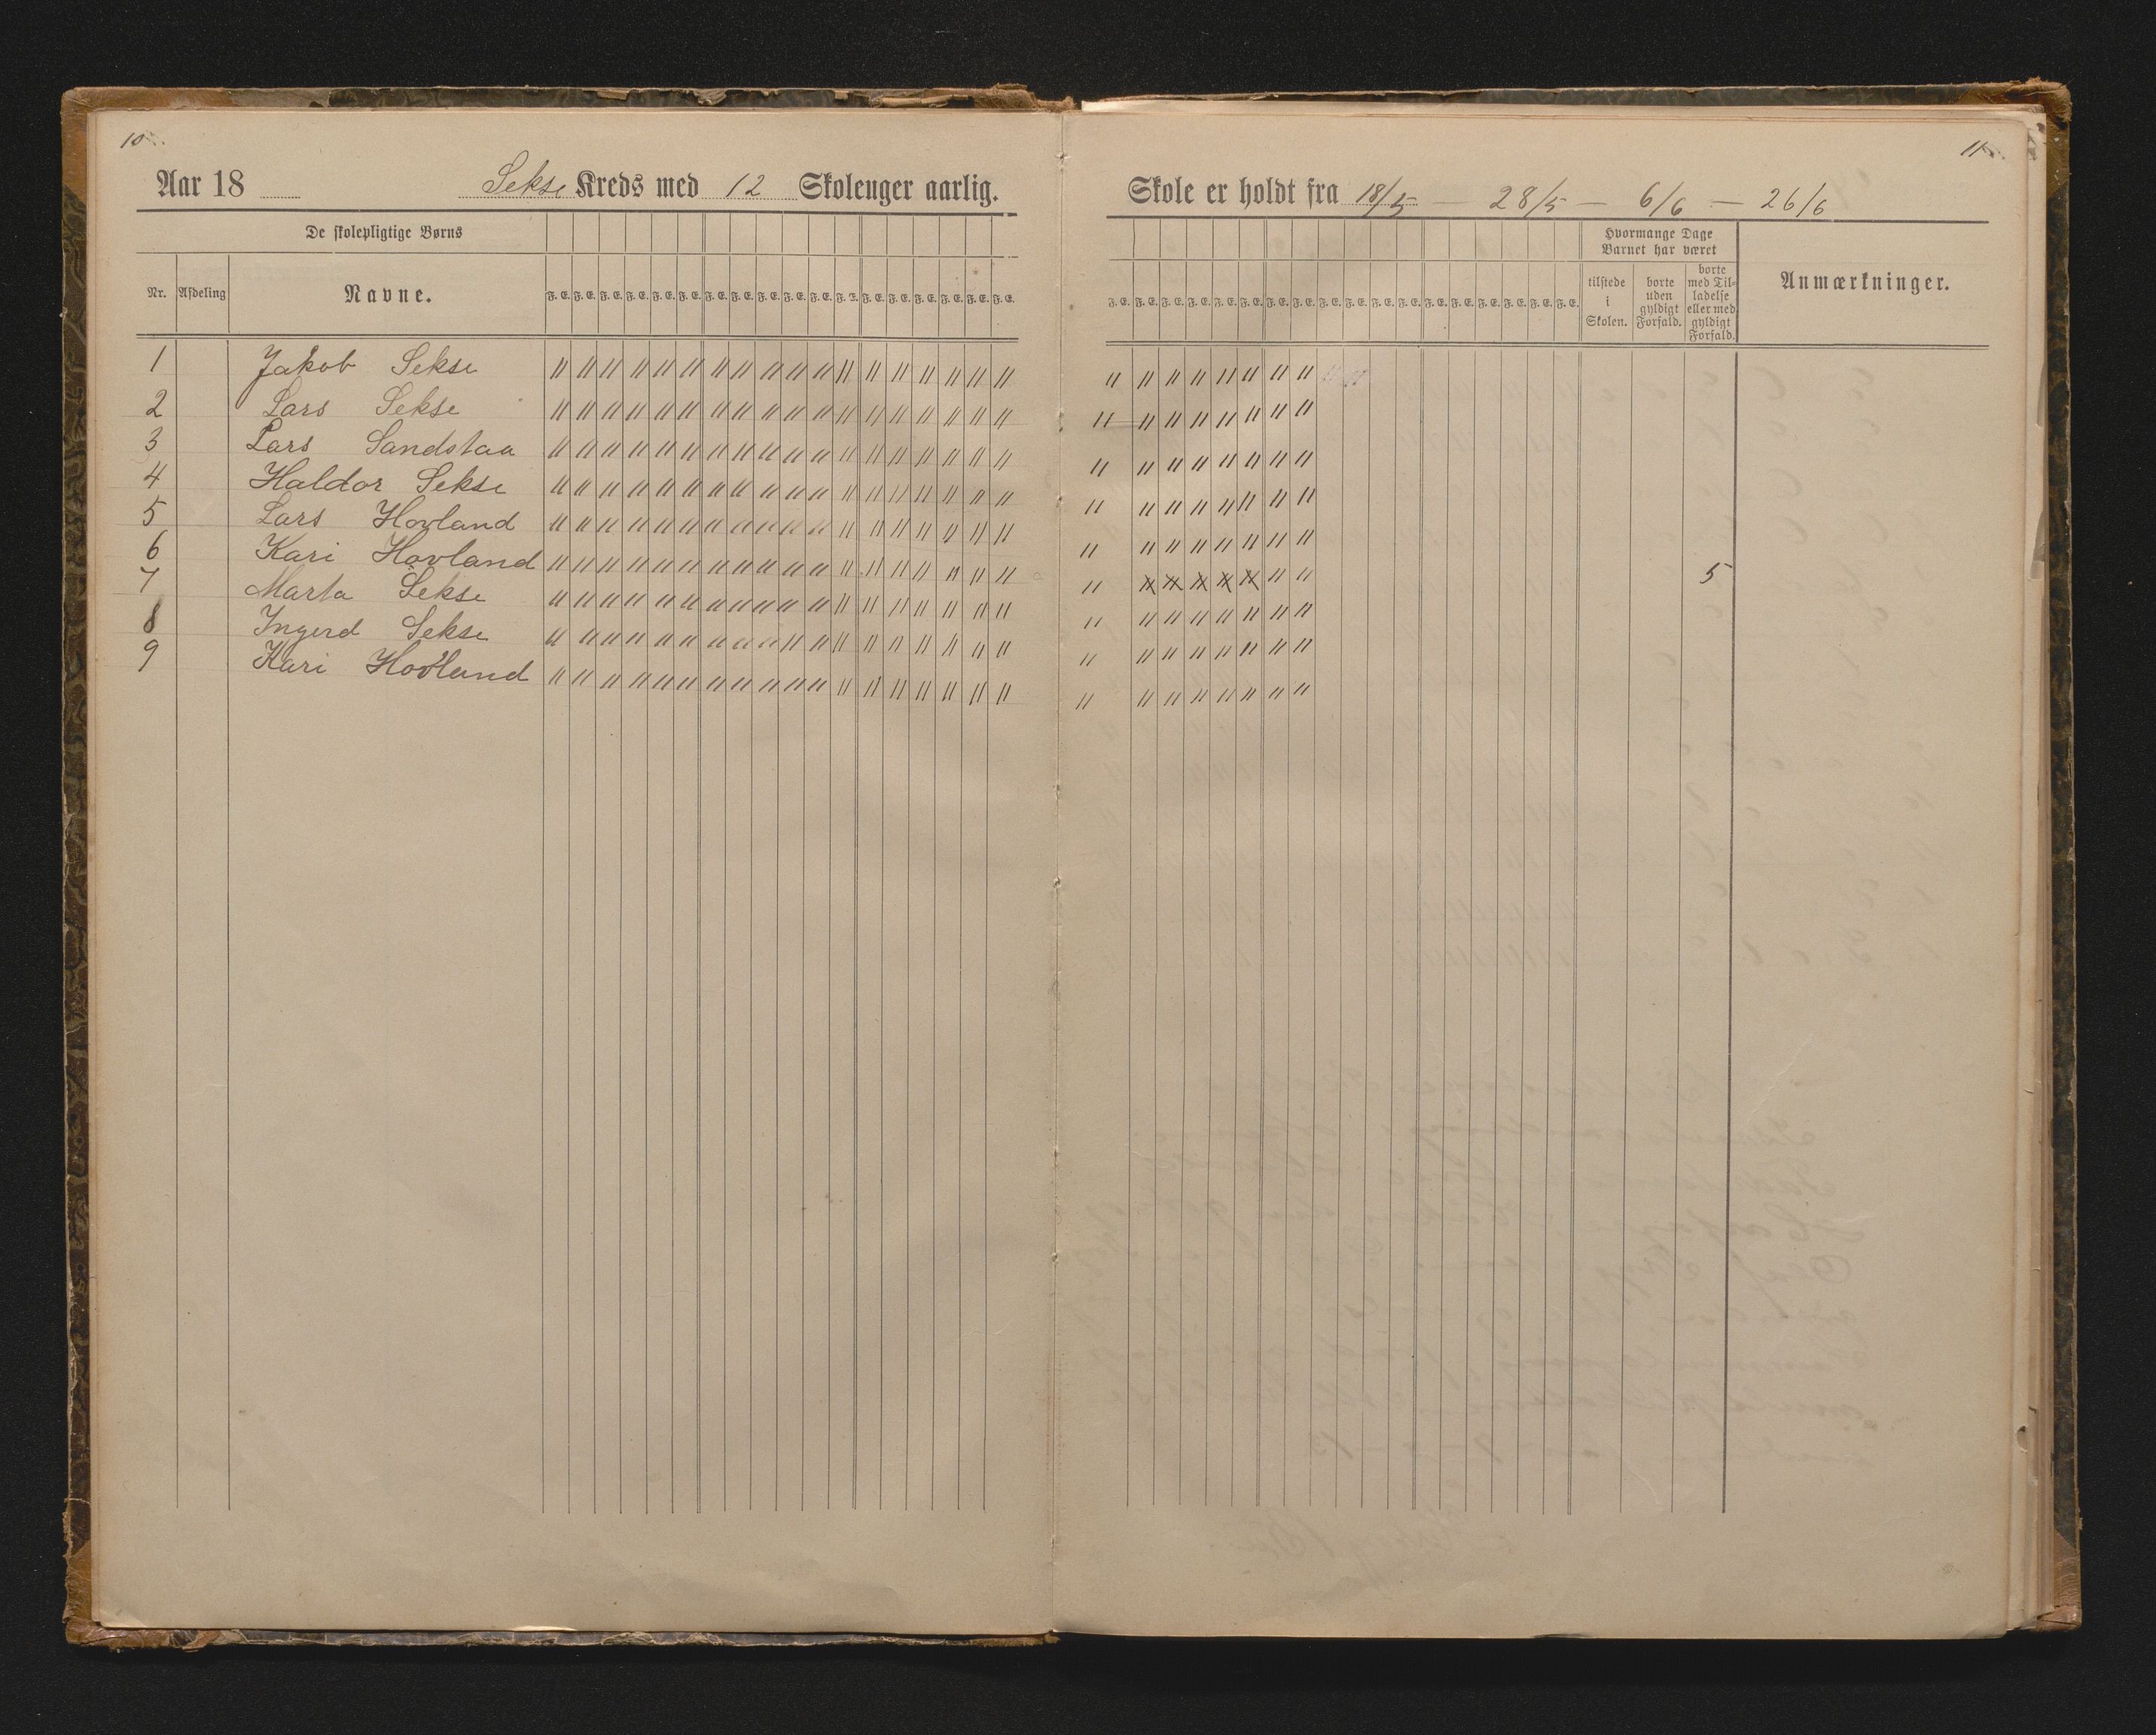 10
Aar 18 Sekse Kreds med 12 Skolenger aarlig.
De skolepligtige Børns
Nr. Afdeling Navne. F. E. F. E. F. E. F. E. F. E. F. E. F. E. F. E. F. E. F. E. F. E. F. E. F. E. F. E. F. E. F. E. F. E. F. E.
1 Jakob Sekse " " " " " " " " " " " " " " " " " "
2 Lars Sekse " " " " " " " " " " " " " " " " " "
3 Lars Sandstaa " " " " " " " " " " " " " " " " " "
4 Haldor Sekse " " " " " " " " " " " " " " " " " "
5 Lars Hovland " " " " " " " " " " " " " " " " " "
6 Kari Hovland " " " " " " " " " " " " " " " " " "
7 Marta Sekse " " " " " " " " " " " " " " " " " "
8 Ingerd Sekse " " " " " " " " " " " " " " " " " "
9 Kari Hovland " " " " " " " " " " " " " " " " " "
11
Skole er holdt fra 18/5 — 28/5 — 6/6 — 26/6
Hvormange Dage
Barnet har været
F. E. F. E. F. E. F. E. F. E. F. E. F. E. F. E. F. E. F. E. F. E. F. E. F. E. F. E. F. E. F. E. F. E. F. E.
tilstede
i
Skolen.
borte
uden
gyldigt
Forfald.
borte
med Til-
ladelse
eller med
gyldigt
Forfald.
Anmærkninger.
" " " " " " " "
" " " " " " " "
" " " " " " " "
" " " " " " " "
" " " " " " " "
" x x x x x " " 5
" " " " " " " "
" " " " " " " "
" " " " " " " "